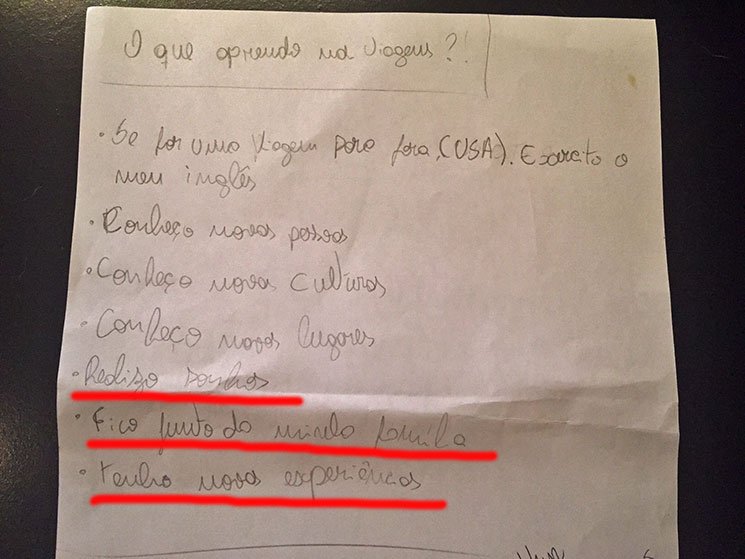 O que aprendo na viagem?!
• Se for uma viagem para fora, (USA). Exercito o
meu inglês
• Conheço novas pessoas
• Conheço novas culturas
• Conheço novos lugares
• Realizo sonhos
• Fico junto da minha família
• tenho novas experiências